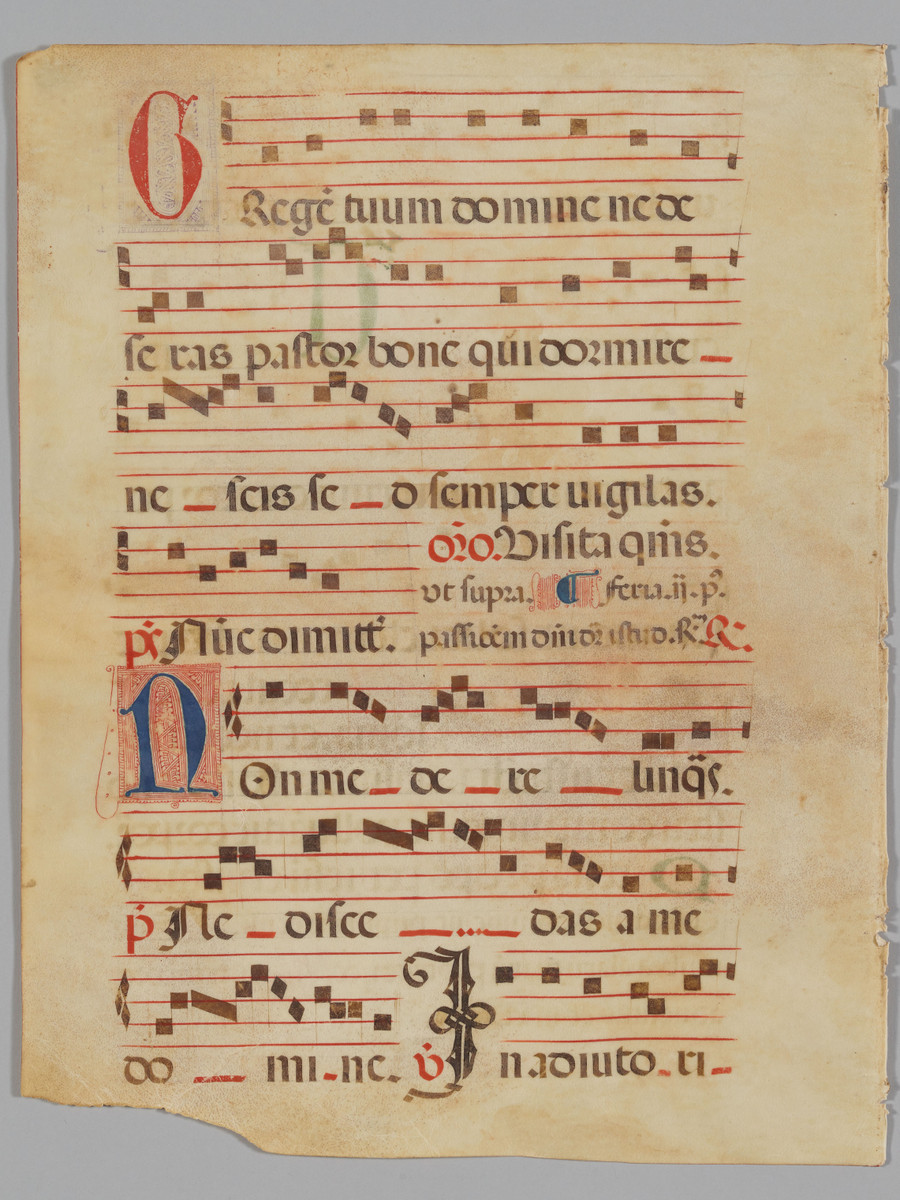 G Regē tuum domine ne de
se ras pastor bone qui dormire
ne scis se d semper uigilas.
or̄o. Visita qm̄s.
ut supra. ¶ feria.ij.p̄.
pſ Nūc dimitt̄. passiōem dn̄i
N On me de re linq̄s.
p̄ Ne disce das a me
do mi ne. v̄ I n adiuto ri